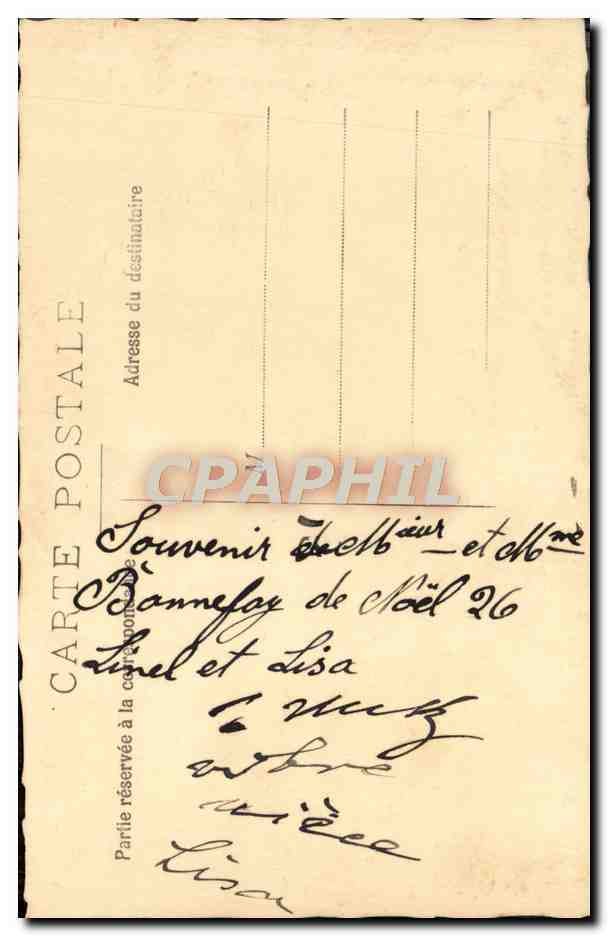 CARTE POSTALE
Partie réservée à la correspondance
Adresse du destinataire
CPAPHIL
Souvenir de Mieur et Mme
Bonnefoy de Noël 26
Linel et Lisa
votre
nièce
Lisa